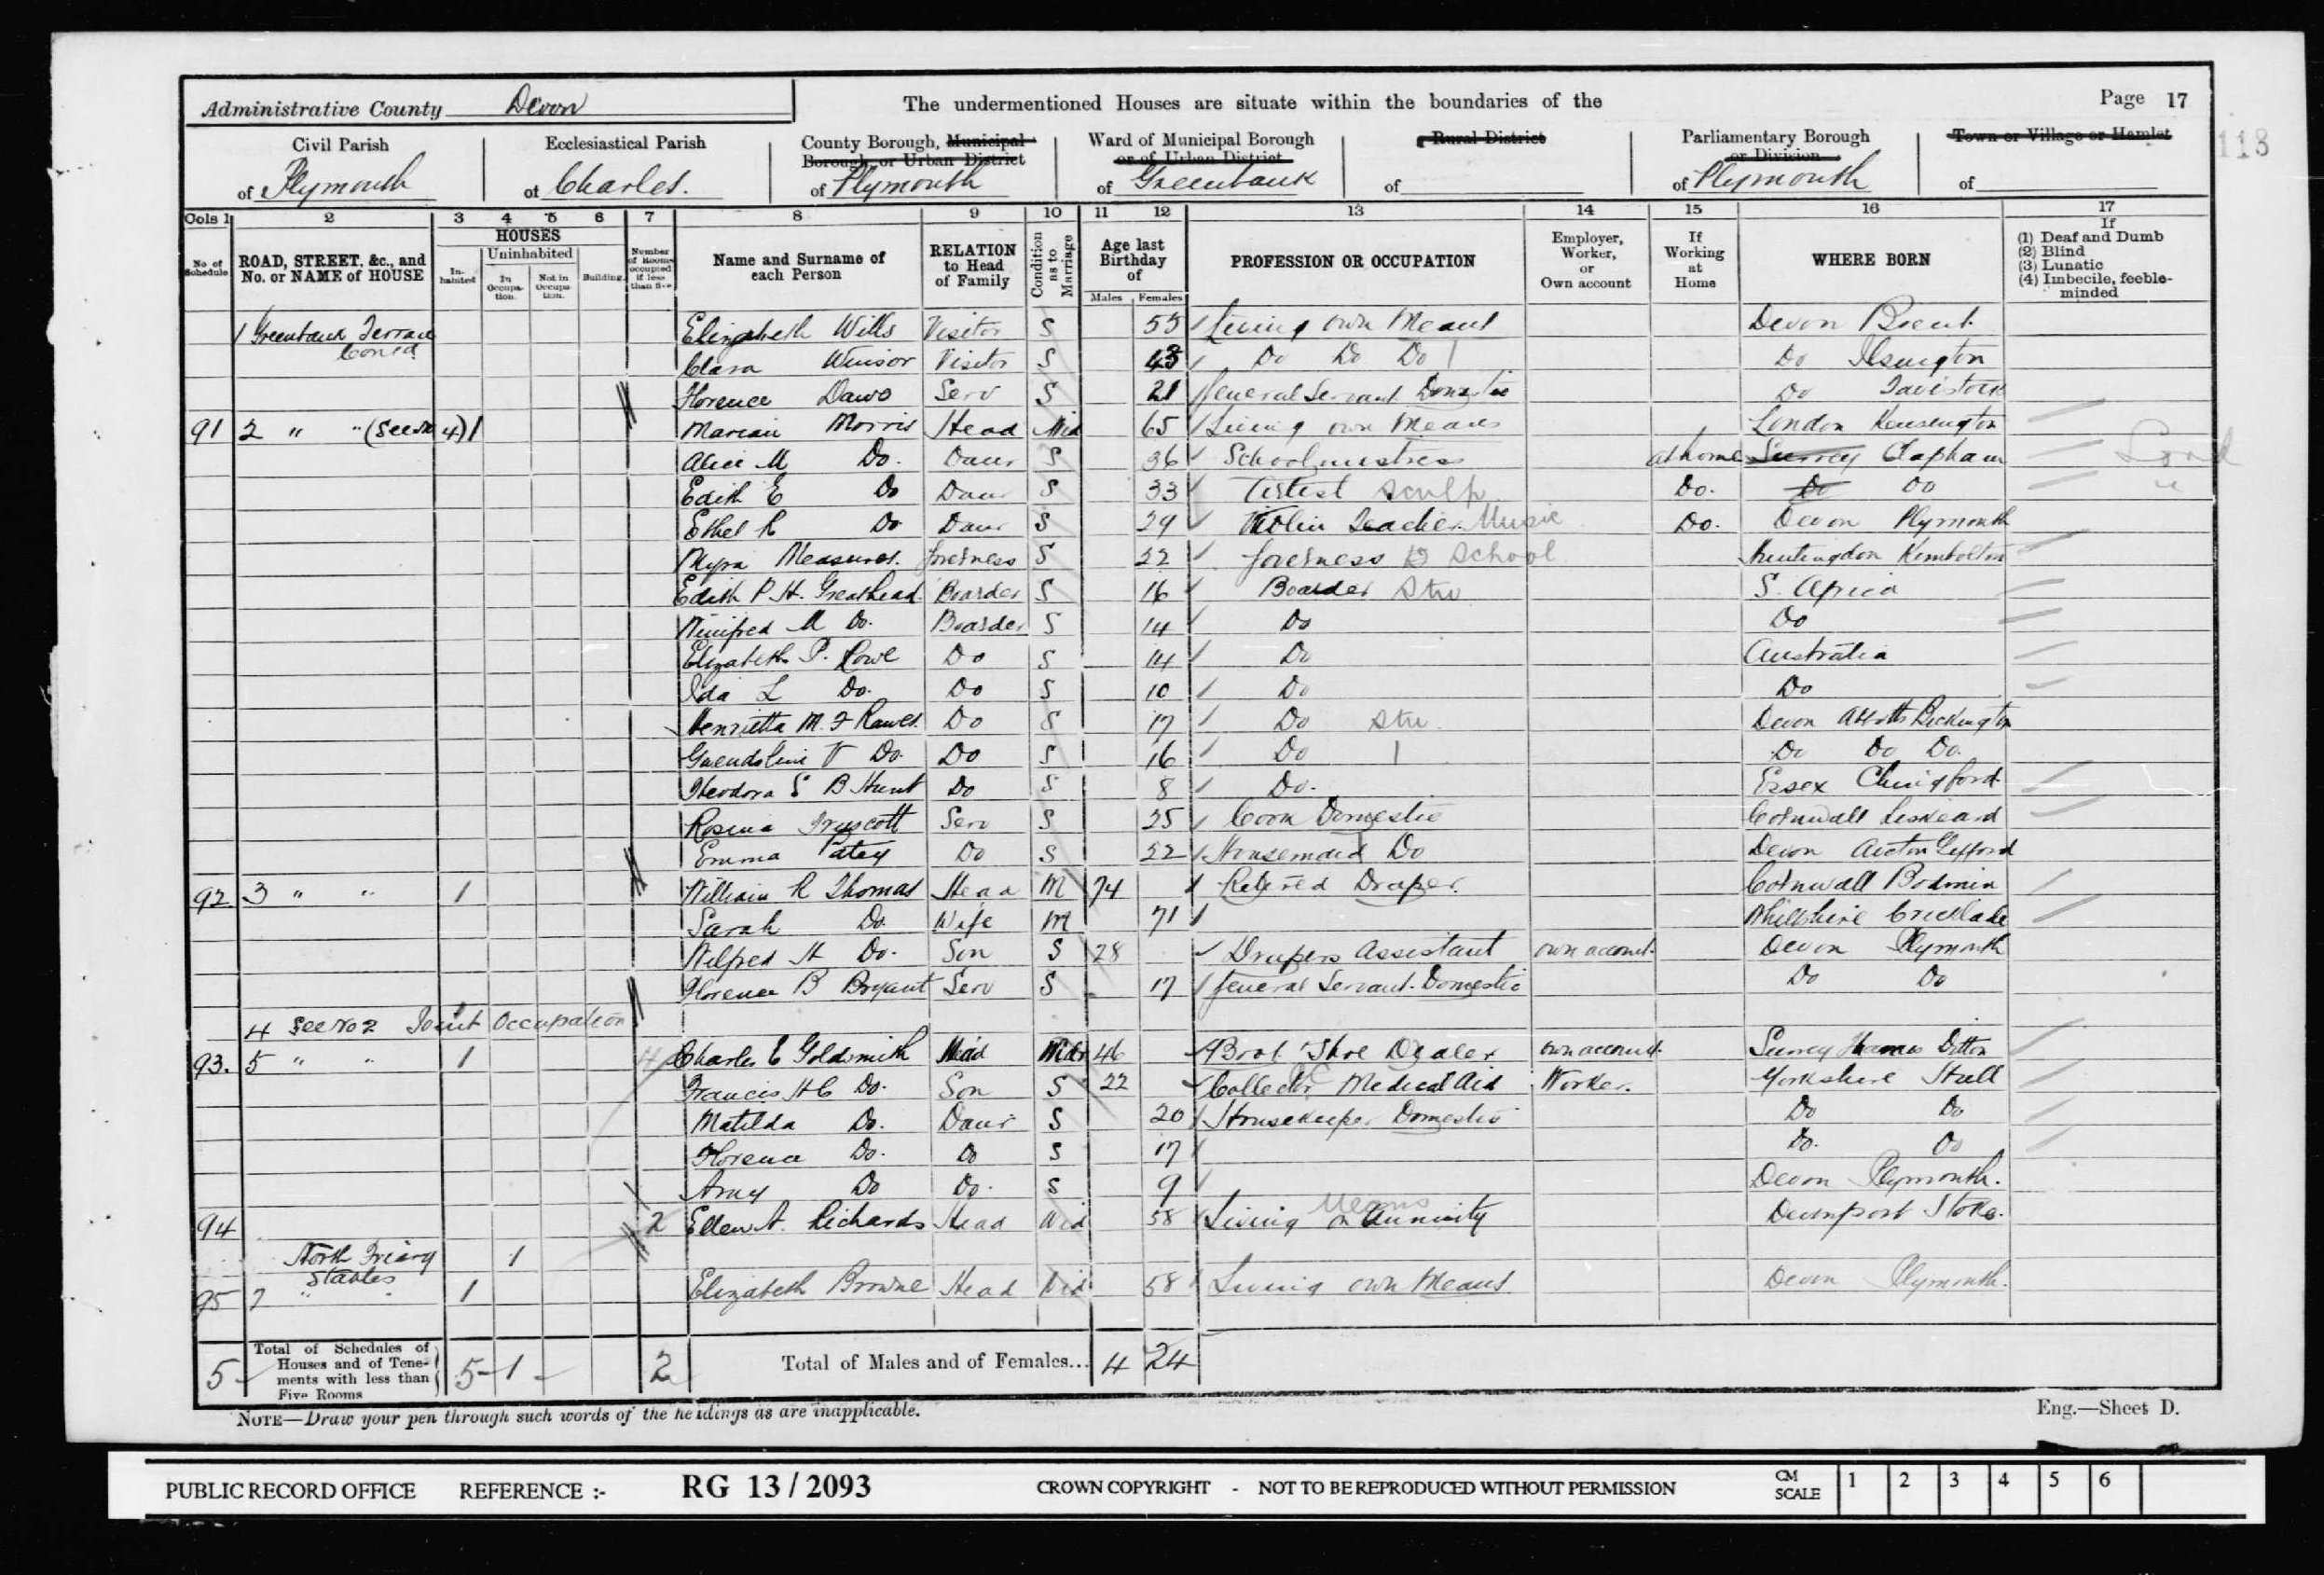 Administrative County Devon
The undermentioned Houses are situate within the boundaries of the
Page 17
118
Civil Parish of Plymouth
Ecclesiastical Parish of Charles.
County Borough, Municipal Borough or Urban District of Plymouth
Ward of Municipal Borough or of Urban District of Greenbank
Rural District of
Parliamentary Borough or Division of Plymouth
Town or Village or Hamlet of
Cols 1 2 3 4 5 6 7 8 9 10 11 12 13 14 15 16 17
No of Schedule
ROAD, STREET, &c., and No. or NAME of HOUSE
HOUSES
Inhabited
Uninhabited
In Occupation.
Not in Occupation.
Building.
Number of Rooms occupied if less than five
Name and Surname of each Person
RELATION to Head of Family
Condition as to Marriage
Age last Birthday of
Males Females
PROFESSION OR OCCUPATION
Employer, Worker, or Own account
If Working at Home
WHERE BORN
If
(1) Deaf and Dumb
(2) Blind
(3) Lunatic
(4) Imbecile, feeble-minded
1 Greenbank Terrace Con'd Elizabeth Wills Visitor S 55 Living own Means Devon Brent
Clara Winsor Visitor S 43 Do Do Do Do Ilsington
Florence Dawe Serv S 21 General Servant Domestic Do Tavistock
91 2 " " (See No 4) 1 Marian Morris Head Wid 65 Living own Means London Kensington
Alice M Do. Daur S 36 Schoolmistress at home Surrey Clapham Lond
Edith E Do Daur S 33 Artist Sculp Do. Do Do "
Ethel R Do Daur S 29 Violin Teacher Music Do. Devon Plymouth
Myra Measures. Governess S 22 Governess School Huntingdon Kimbolton
Edith P. H. Greathead Boarder S 16 Boarder Stu S. Africa
Winifred M Do. Boarder S 14 Do Do
Elizabeth P. Rowe Do S 14 Do Australia
Ida L Do. Do S 10 Do Do
Henrietta M. F Rawes. Do S 17 Do Stu Devon Abbotts Bickington
Gwendoline V Do. Do S 16 Do Do Do Do.
Theodora E B Hunt Do S 8 Do. Essex Chingford.
Rosina Truscott Serv S 25 Cook Domestic Cornwall Liskeard
Emma Patey Do S 22 Housemaid Do Devon Aveton Gifford
92 3 " " 1 William R Thomas Head M 74 Retired Draper. Cornwall Bodmin
Sarah Do. Wife M 71 Wiltshire Cricklade
Wilfred H Do. Son S 28 Drapers Assistant own account. Devon Plymouth
Florence B Bryant Serv S 17 General Servant. Domestic Do Do
4 See No 2 Joint Occupation
93. 5 " " 1 4 Charles E Goldsmith Head Widr 46 Boot Shoe Dealer own account. Surrey Thames Ditton
Francis H C Do. Son S 22 Collector Medical Aid Worker. Yorkshire Hull
Matilda Do. Daur S 20 Housekeeper Domestic Do Do
Florence Do. Do S 17 Do. Do
Amy Do Do. S 9 Devon Plymouth.
94 2 Ellen A. Richards Head Wid 58 Living on Annuity Means Devonport Stoke.
North Friary Stables 1
95 7 " " 1 Elizabeth Browne Head Wid 58 Living own Means. Devon Plymouth.
5 Total of Schedules of Houses and of Tenements with less than Five Rooms 5 1 2 Total of Males and of Females... 4 24
NOTE—Draw your pen through such words of the headings as are inapplicable.
Eng.—Sheet D.
PUBLIC RECORD OFFICE REFERENCE :- RG 13/2093 CROWN COPYRIGHT - NOT TO BE REPRODUCED WITHOUT PERMISSION CM SCALE 1 2 3 4 5 6